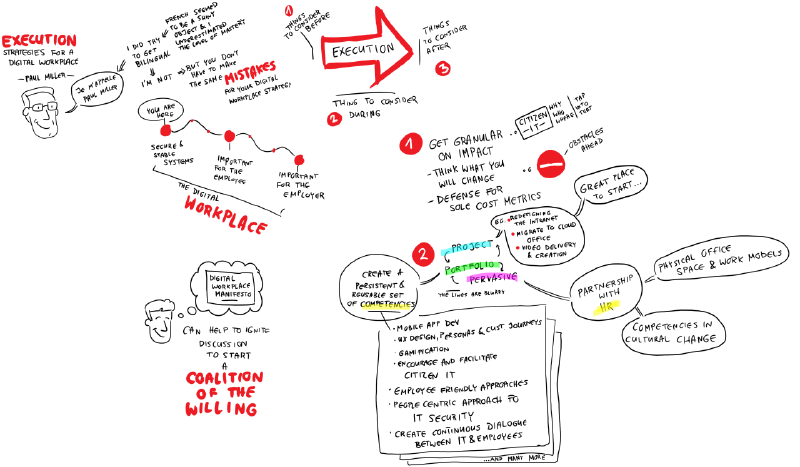 EXECUTION
STRATEGIES FOR A
DIGITAL WORKPLACE
— PAUL MILLER —
JE M'APPELLE
PAUL MILLER
I DID TRY
TO GET
BILINGUAL
FRENCH SEEMED
TO BE A SHINY
OBJECT & I
UNDERESTIMATED
THE LEVEL OF MASTERY
I'M NOT
BUT YOU DON'T
HAVE TO MAKE
THE SAME MISTAKES
FOR YOUR DIGITAL
WORKPLACE STRATEGY
YOU ARE
HERE
SECURE &
STABLE
SYSTEMS
IMPORTANT
FOR THE
EMPLOYEE
IMPORTANT
FOR THE
EMPLOYER
THE DIGITAL
WORKPLACE
1
THINGS
TO CONSIDER
BEFORE
EXECUTION
THINGS
TO CONSIDER
AFTER
3
THING TO CONSIDER
DURING
2
1
GET GRANULAR
ON IMPACT
- THINK WHAT YOU
WILL CHANGE
- DEFENSE FOR
SOLE COST METRICS
CITIZEN
— IT —
WHY
WHO
WHERE
TAP
INTO
THAT
OBSTACLES
AHEAD
2
PROJECT
PORTFOLIO
PERVASIVE
THE LINES ARE BLURRY
EG. • REDEFINING
THE INTRANET
• MIGRATE TO CLOUD
OFFICE
• VIDEO DELIVERY
& CREATION
GREAT PLACE
TO START...
CREATE A
PERSISTENT &
REUSABLE SET
OF COMPETENCIES
PARTNERSHIP
WITH
HR
PHYSICAL OFFICE
SPACE & WORK MODELS
COMPETENCIES IN
CULTURAL CHANGE
• MOBILE APP DEV
• UX DESIGN, PERSONAS & CUST. JOURNEYS
• GAMIFICATION
• ENCOURAGE AND FACILITATE
CITIZEN IT
• EMPLOYEE FRIENDLY APPROACHES
• PEOPLE CENTRIC APPROACH TO
IT SECURITY
• CREATE CONTINUOUS DIALOGUE
BETWEEN IT & EMPLOYEES
...AND MANY MORE
DIGITAL
WORKPLACE
MANIFESTO
CAN HELP TO IGNITE
DISCUSSION
TO START
A
COALITION
OF THE
WILLING